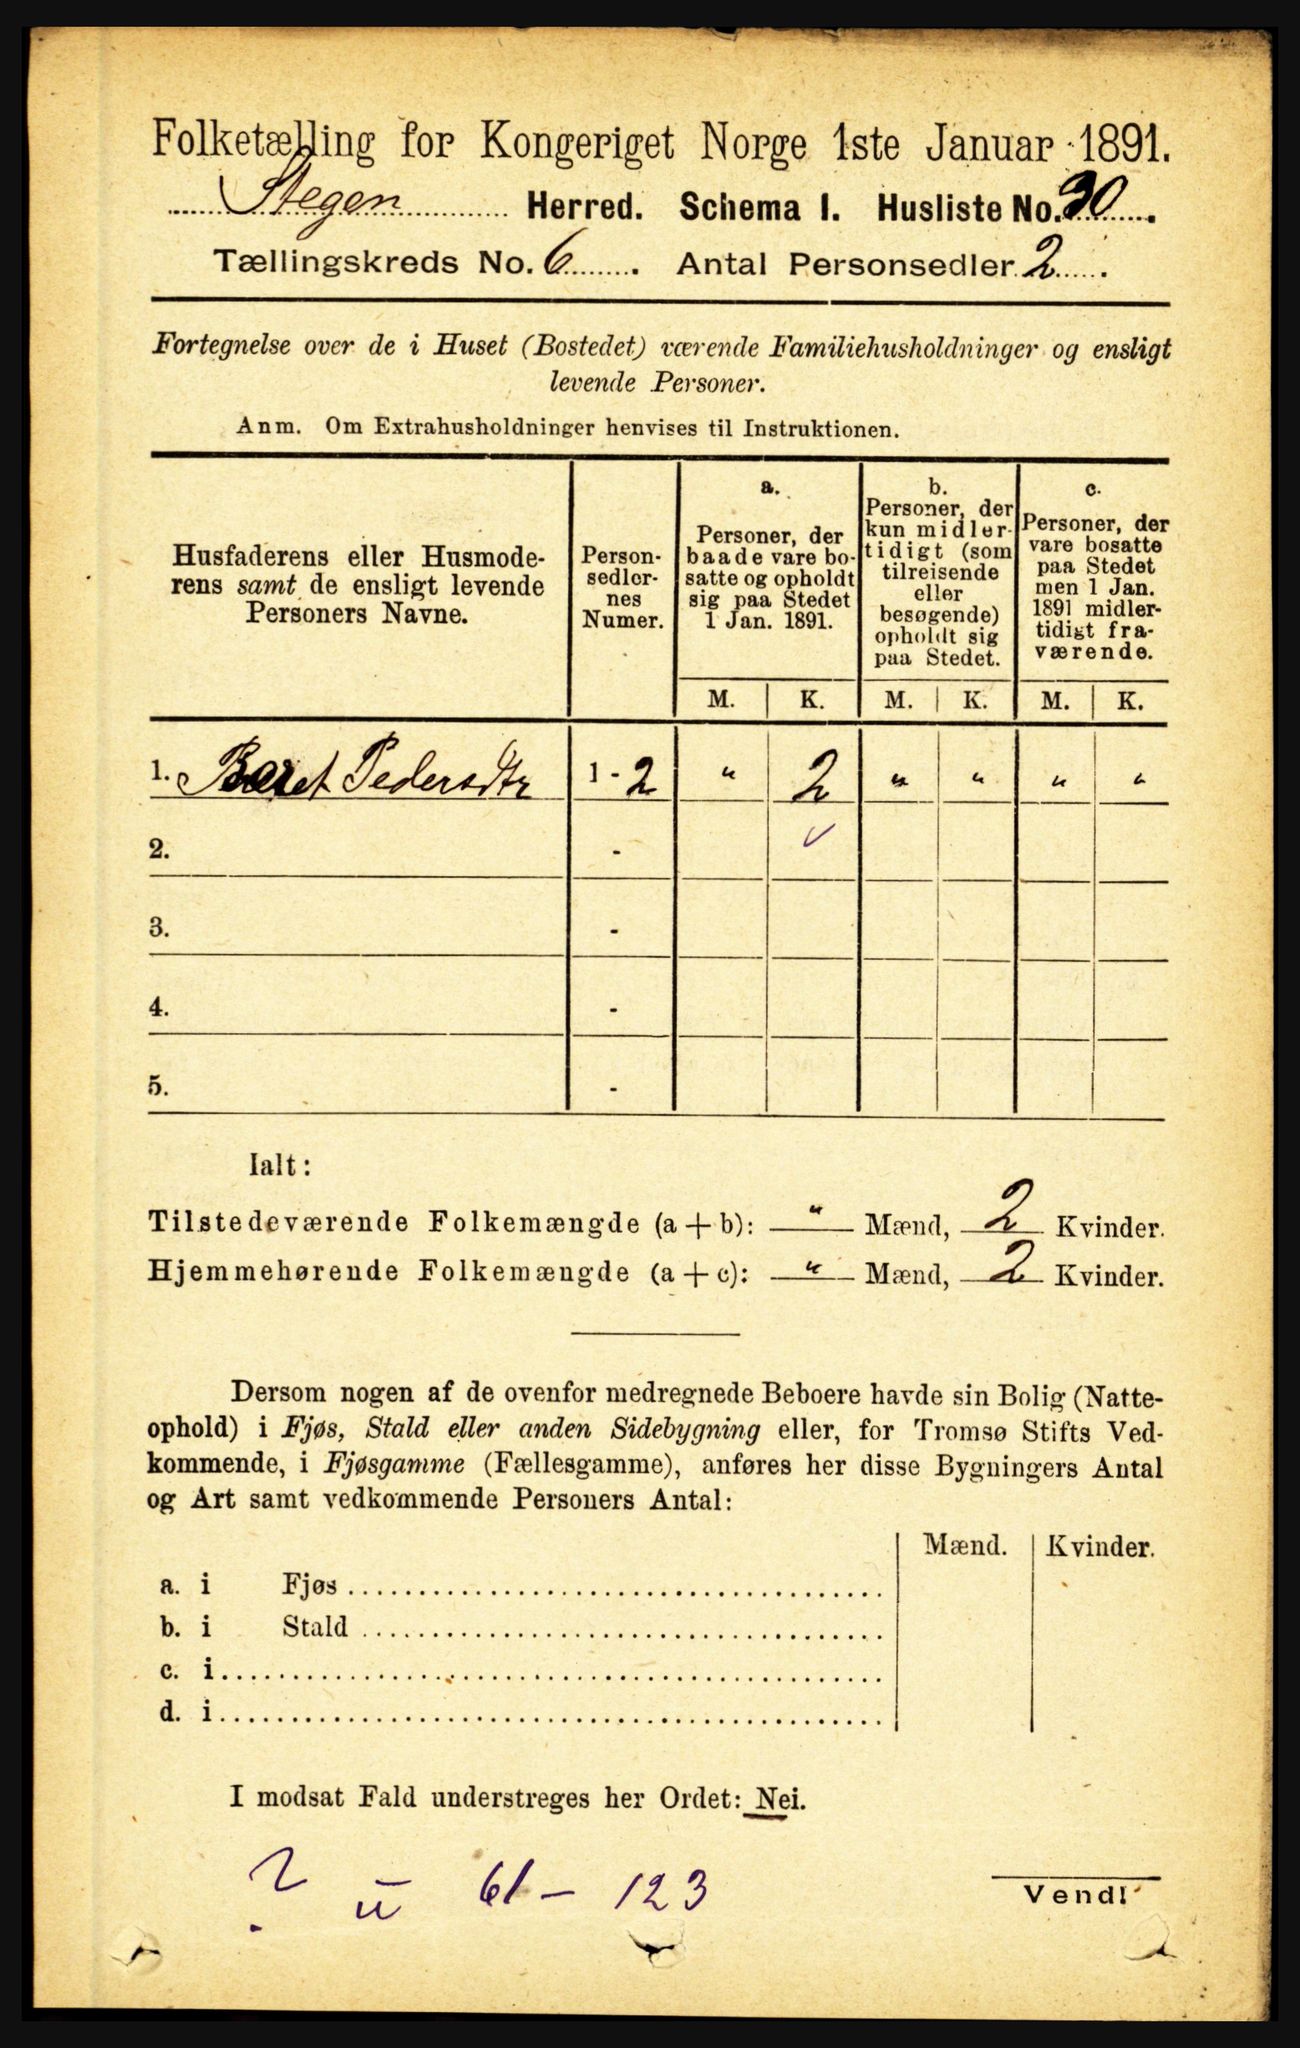 Folketælling for Kongeriget Norge 1ste Januar 1891.
Stegen Herred. Schema I. Husliste No. 30.
Tællingskreds No. 6. Antal Personsedler 2.
Fortegnelse over de i Huset (Bostedet) værende Familiehusholdninger og ensligt
levende Personer.
Anm. Om Extrahusholdninger henvises til Instruktionen.
Husfaderens eller Husmode-
rens samt de ensligt levende
Personers Navne.
Person-
sedler-
nes
Numer.
a.
Personer, der
baade vare bo-
satte og opholdt
sig paa Stedet
1 Jan. 1891.
b.
Personer, der
kun midler-
tidigt (som
tilreisende
eller
besøgende)
opholdt sig
paa Stedet.
c.
Personer, der
vare bosatte
paa Stedet
men 1 Jan.
1891 midler-
tidigt fra-
værende.
M. K. M. K. M. K.
1. Beret Pedersdtr 1 - 2 " 2 " " " "
2. -
3. -
4. -
5. -
Ialt:
Tilstedeværende Folkemængde (a + b): " Mænd, 2 Kvinder.
Hjemmehørende Folkemængde (a + c): " Mænd, 2 Kvinder.
Dersom nogen af de ovenfor medregnede Beboere havde sin Bolig (Natte-
ophold) i Fjøs, Stald eller anden Sidebygning eller, for Tromsø Stifts Ved-
kommende, i Fjøsgamme (Fællesgamme), anføres her disse Bygningers Antal
og Art samt vedkommende Personers Antal:
Mænd. Kvinder.
a. i Fjøs
b. i Stald
c. i
d. i
I modsat Fald understreges her Ordet: Nei.
? u 61 - 123
Vend!